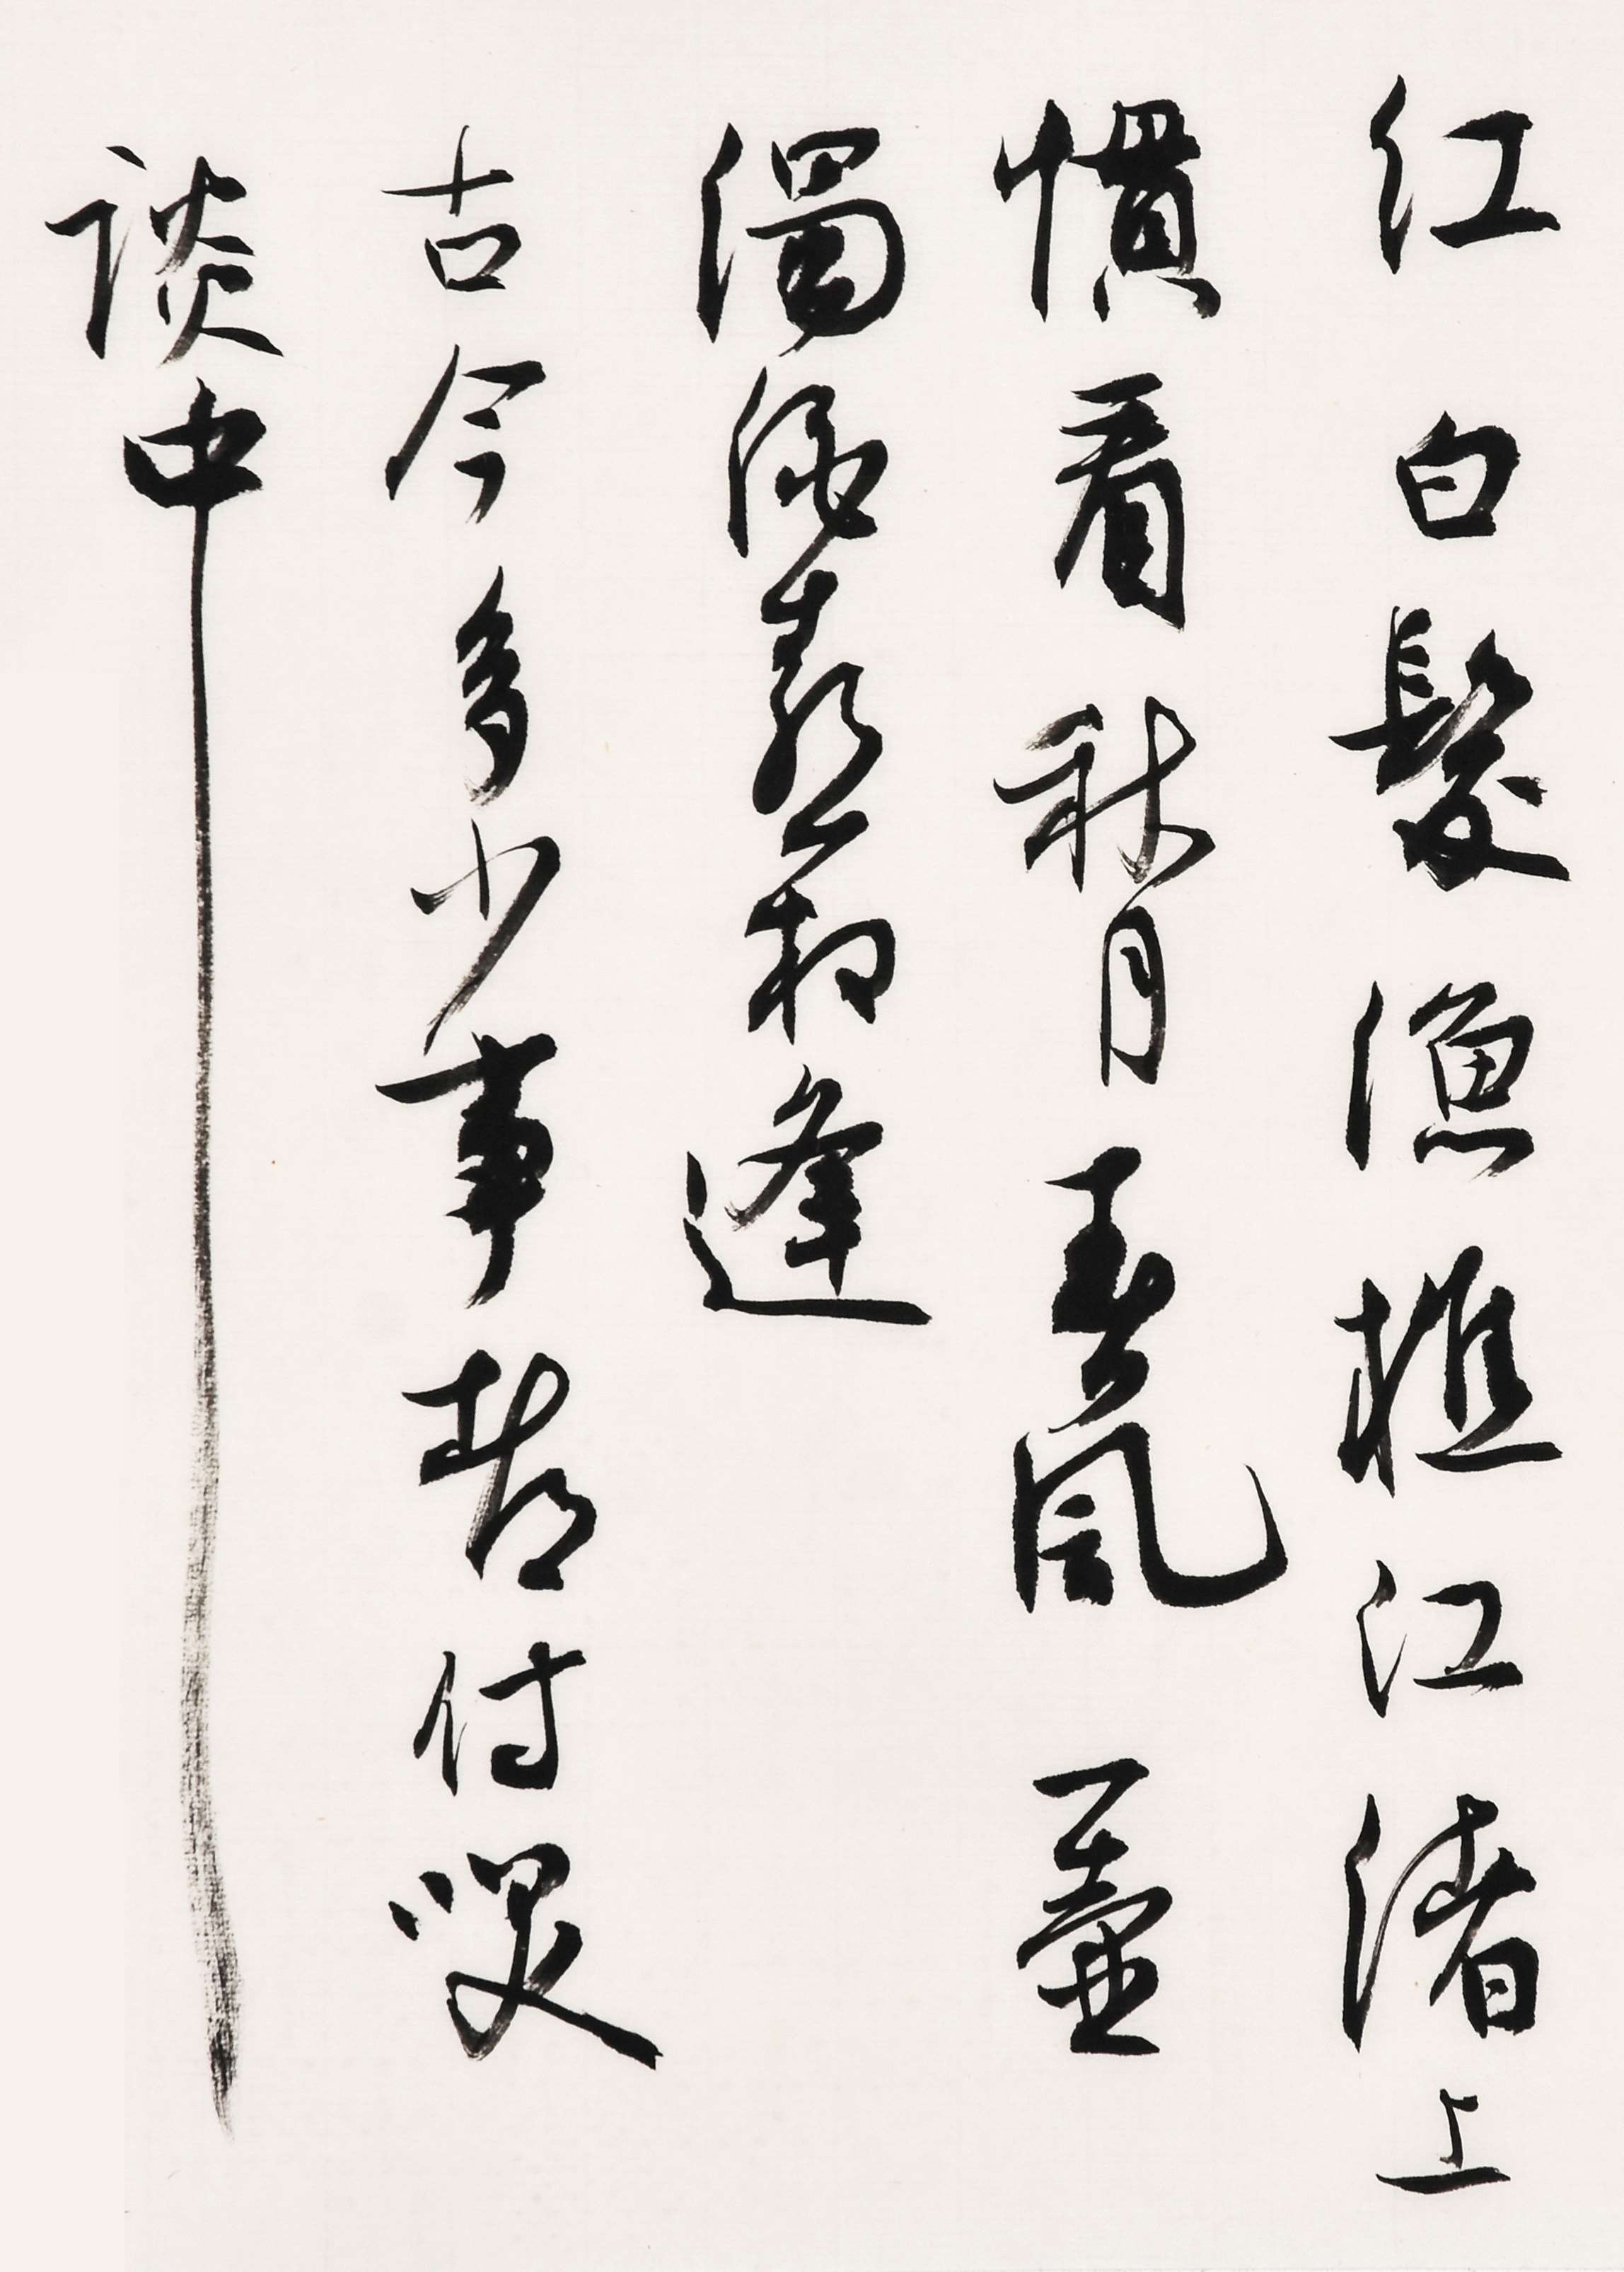 紅白髮漁樵江渚上
慣看秋月春風一壺
濁酒喜相逢
古今多少事都付笑
談中